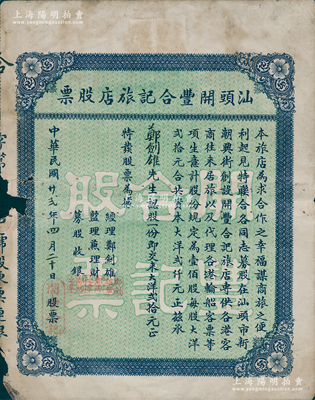 上海陽明拍賣
汕頭開豐合記旅店股票
本旅店為求合作之幸福謀商旅之便
利起見特聯合各同志募股在汕頭市新
潮興街創設開豐合記旅店專供各港客
商往來居旅以及代理各港輪船客票等
項生意計股份規定為壹佰股每股大洋
弍拾元合共資本大洋弍仟元正茲承
鄭劍雄先生認股份即交來大洋弍拾元正
特發股票為據
總理鄭劍雄
監理兼理財
募股收銀
中華民國廿六年四月二十日 股票
合股
記票